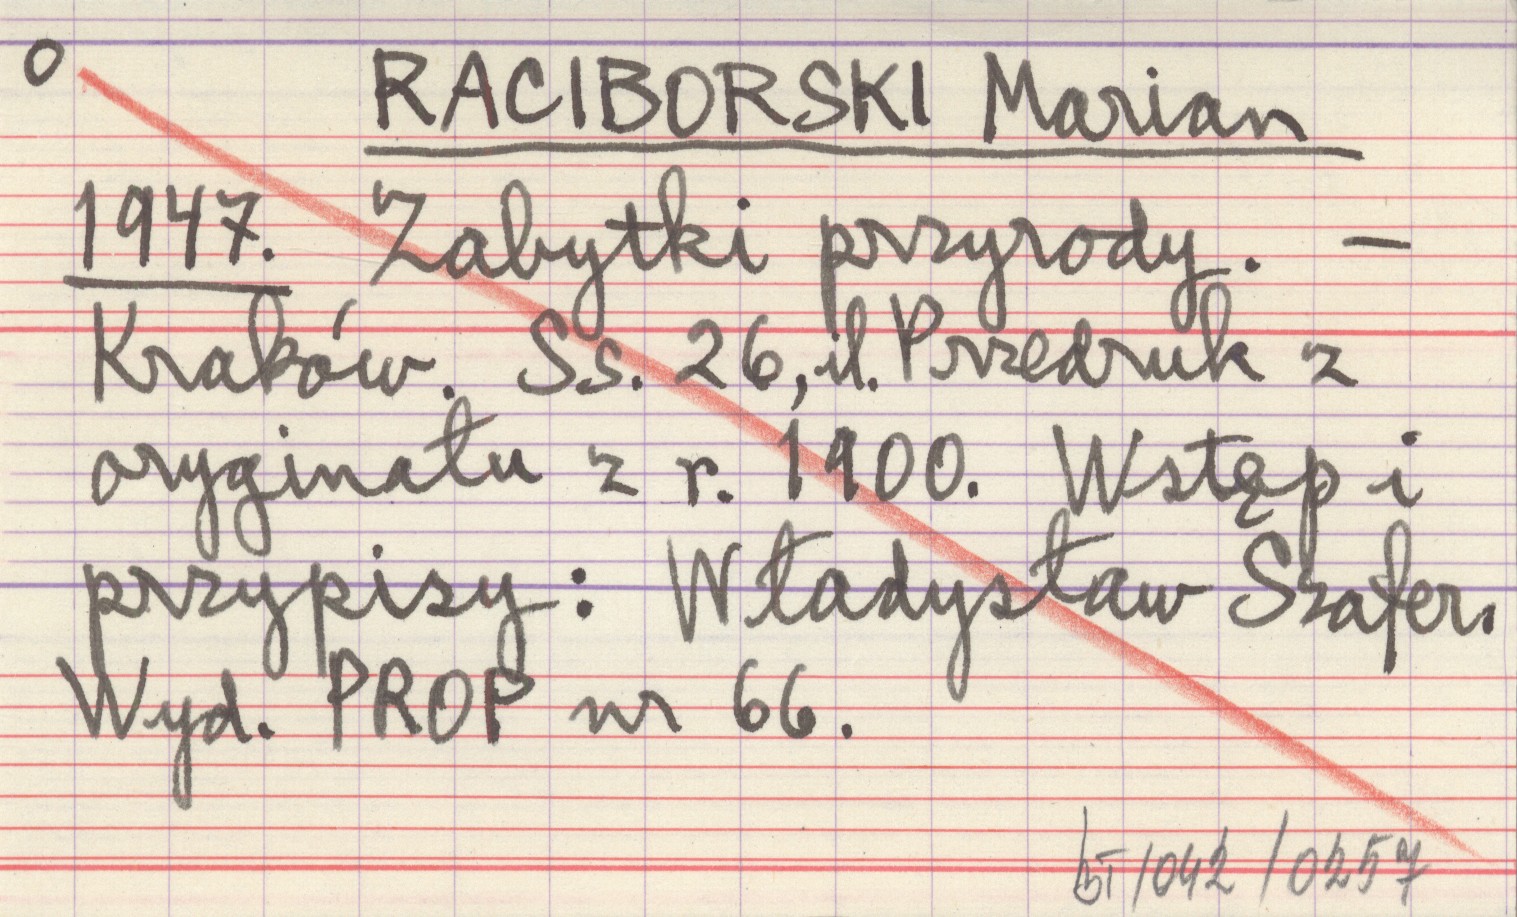 O
RACIBORSKI Marian
1947. Zabytki przyrody. –
Kraków. Ss. 26, il. Przedruk z
oryginału z r. 1900. Wstęp i
przypisy: Władysław Szafer.
Wyd. PROP nr 66.
/042/0257